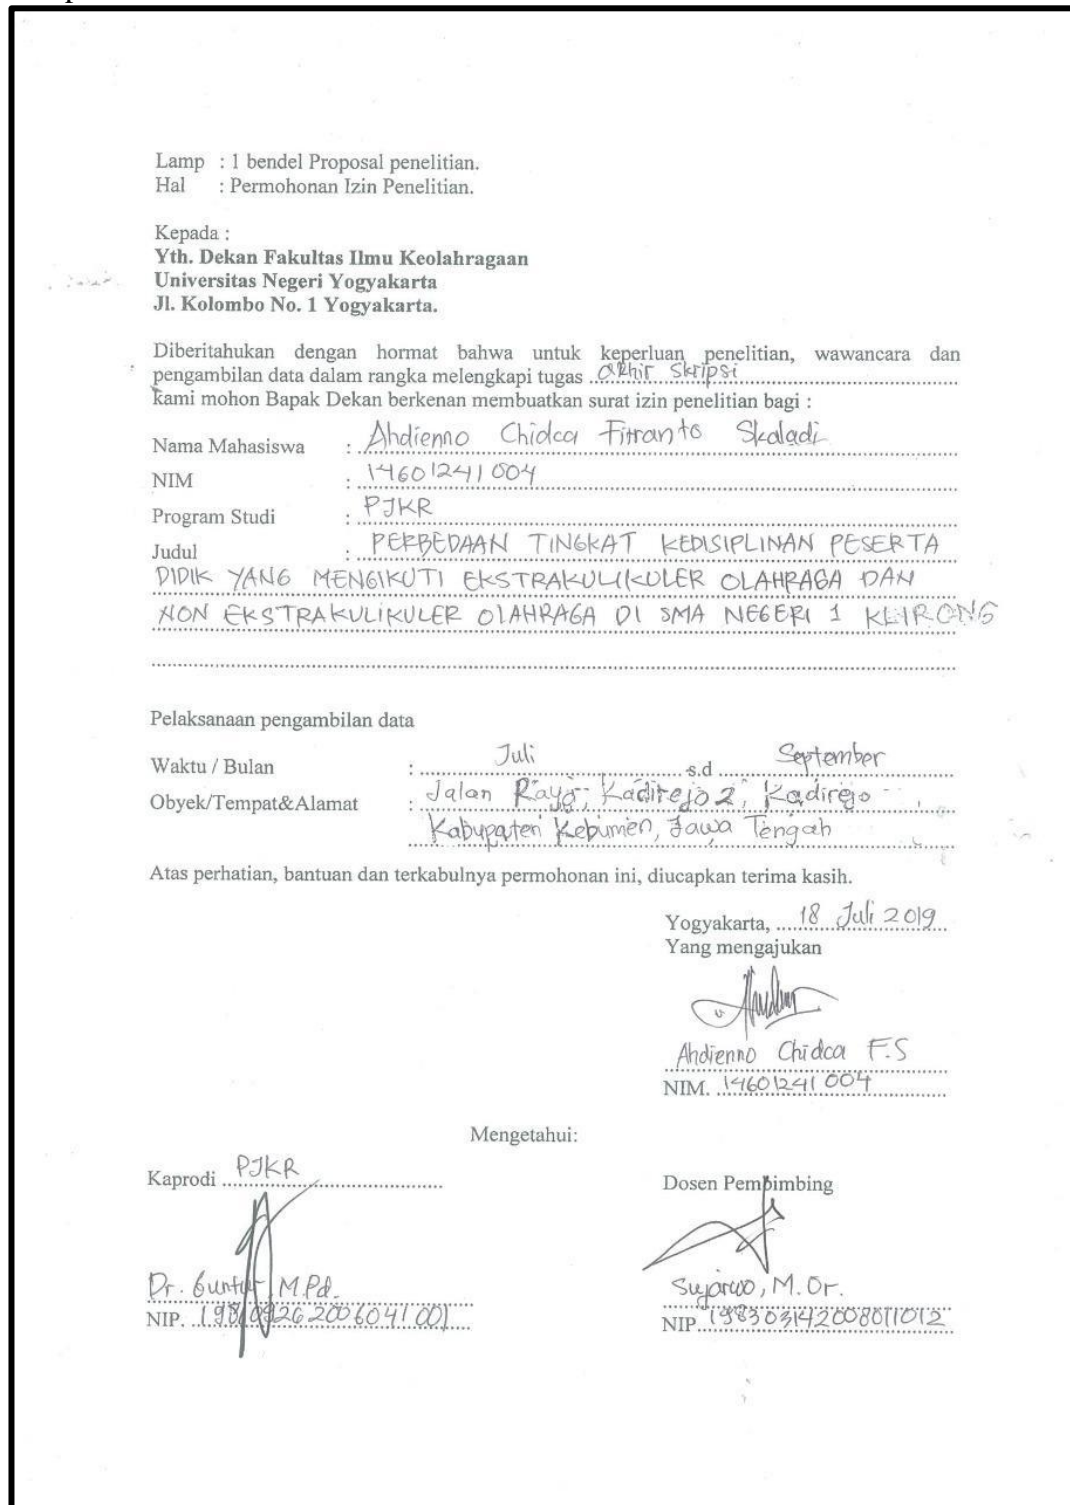 Lamp : 1 bendel Proposal penelitian.
Hal : Permohonan Izin Penelitian.
Kepada :
Yth. Dekan Fakultas Ilmu Keolahragaan
Universitas Negeri Yogyakarta
Jl. Kolombo No. 1 Yogyakarta.
Diberitahukan dengan hormat bahwa untuk keperluan penelitian, wawancara dan
pengambilan data dalam rangka melengkapi tugas akhir skripsi
kami mohon Bapak Dekan berkenan membuatkan surat izin penelitian bagi :
Nama Mahasiswa : Ahdienno Chidca Fitranto Skaladi
NIM : 14601241004
Program Studi : PJKR
Judul : PERBEDAAN TINGKAT KEDISIPLINAN PESERTA
DIDIK YANG MENGIKUTI EKSTRAKULIKULER OLAHRAGA DAN
NON EKSTRAKULIKULER OLAHRAGA DI SMA NEGERI 1 KLIRONG
Pelaksanaan pengambilan data
Waktu / Bulan : Juli s.d September
Obyek/Tempat&Alamat : Jalan Raya, Kadirejo 2, Kadirejo
Kabupaten Kebumen, Jawa Tengah
Atas perhatian, bantuan dan terkabulnya permohonan ini, diucapkan terima kasih.
Yogyakarta, 18 Juli 2019
Yang mengajukan
Ahdienno Chidca F.S
NIM. 14601241004
Mengetahui:
Kaprodi PJKR
Dosen Pembimbing
Dr. Guntur, M.Pd.
Sujarwo, M.Or.
NIP. 
NIP. 198303142008011012